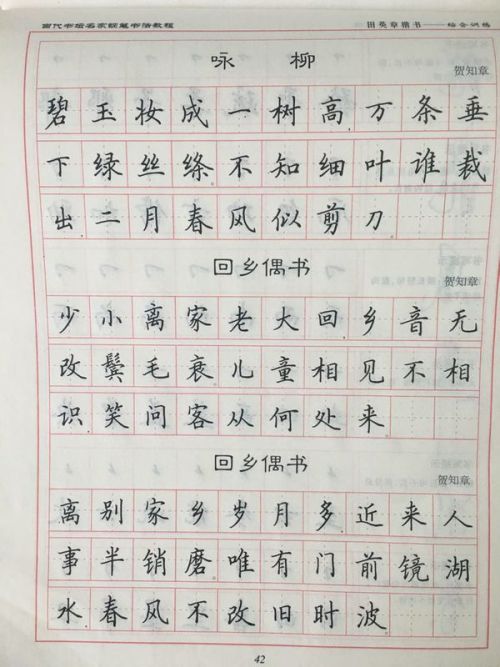 当代书坛名家硬笔书法教程 田英章楷书——综合训练
咏柳
贺知章
碧玉妆成一树高万条垂
下绿丝绦不知细叶谁裁
出二月春风似剪刀
回乡偶书
贺知章
少小离家老大回乡音无
改鬓毛衰儿童相见不相
识笑问客从何处来
回乡偶书
贺知章
离别家乡岁月多近来人
事半销磨唯有门前镜湖
水春风不改旧时波
42